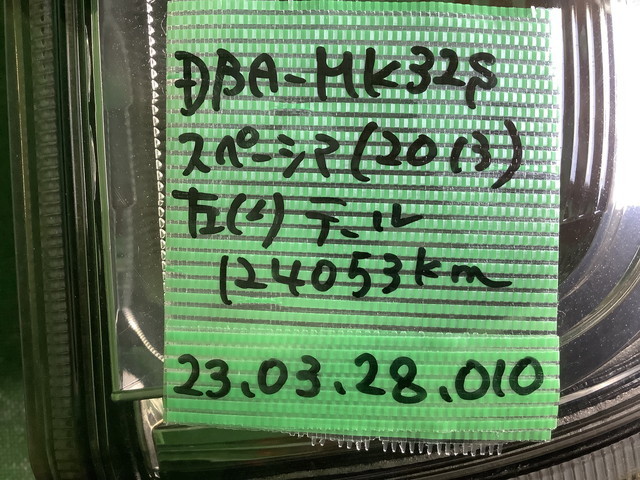 DBA-MK32S
スペーシア(2013)
左(L)テール
124053km
23.03.28.010